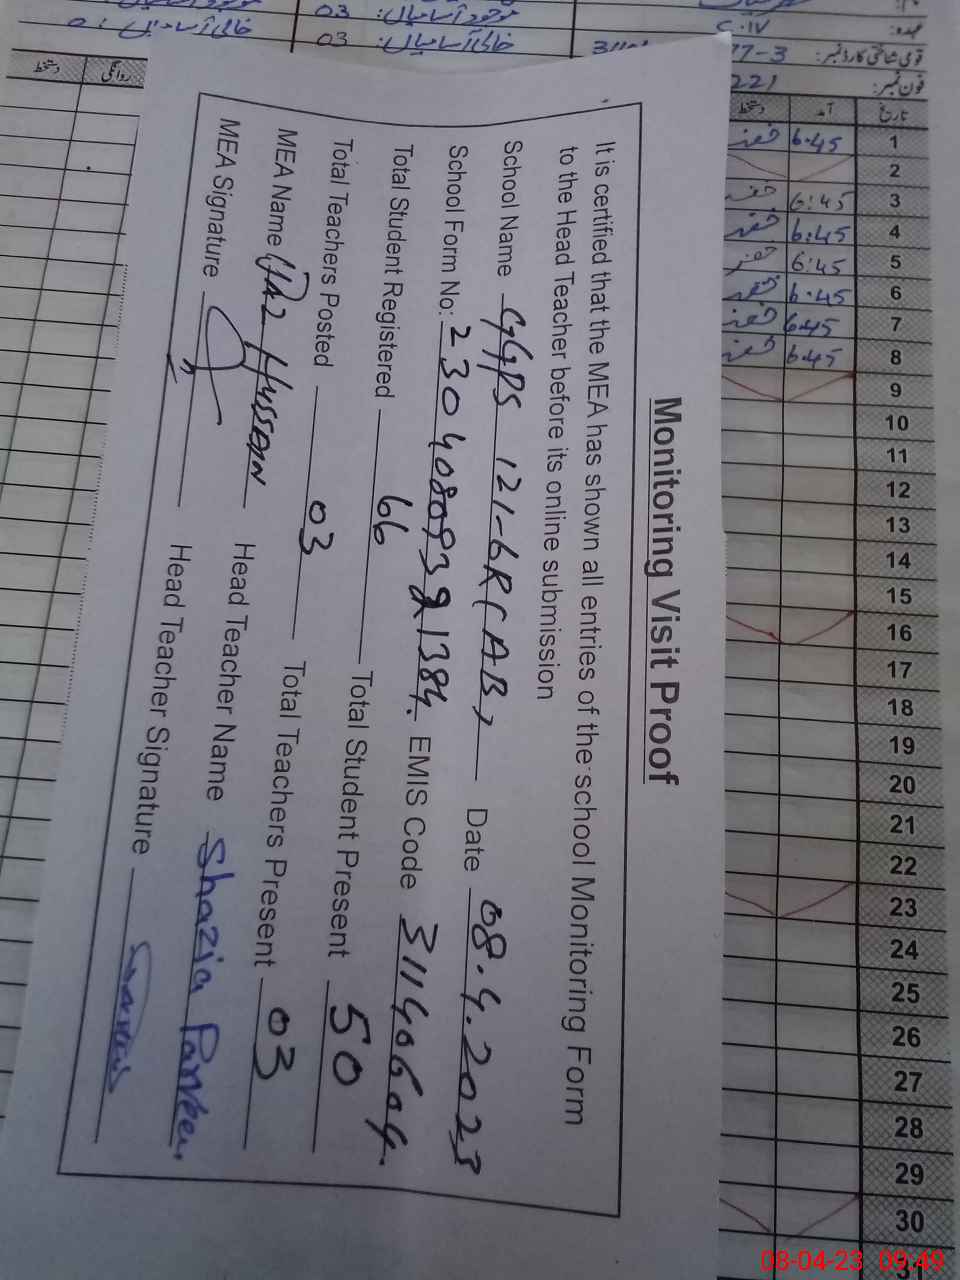 Monitoring Visit Proof
It is certified that the MEA has shown all entries of the school Monitoring Form
to the Head Teacher before its online submission
School Name GGPS 121-6R (AB) Date 08.4.2023
School Form No: EMIS Code 31140604.
Total Student Registered 66 Total Student Present 50
Total Teachers Posted 03 Total Teachers Present 03
MEA Name Hussain Head Teacher Name Shazia Parveen
MEA Signature Head Teacher Signature
موجود آسامیاں: 03
خالی آسامیاں: 03
عہدہ:
قومی شناختی کارڈ نمبر: 77-3
فون نمبر: 221
تاریخ آمد دستخط
روانگی دستخط
1 6:45
2
3 6:45
4 6:45
5 6:45
6 6:45
7 6:45
8 6:45
9
10
11
12
13
14
15
16
17
18
19
20
21
22
23
24
25
26
27
28
29
30
31
08-04-23 09:49